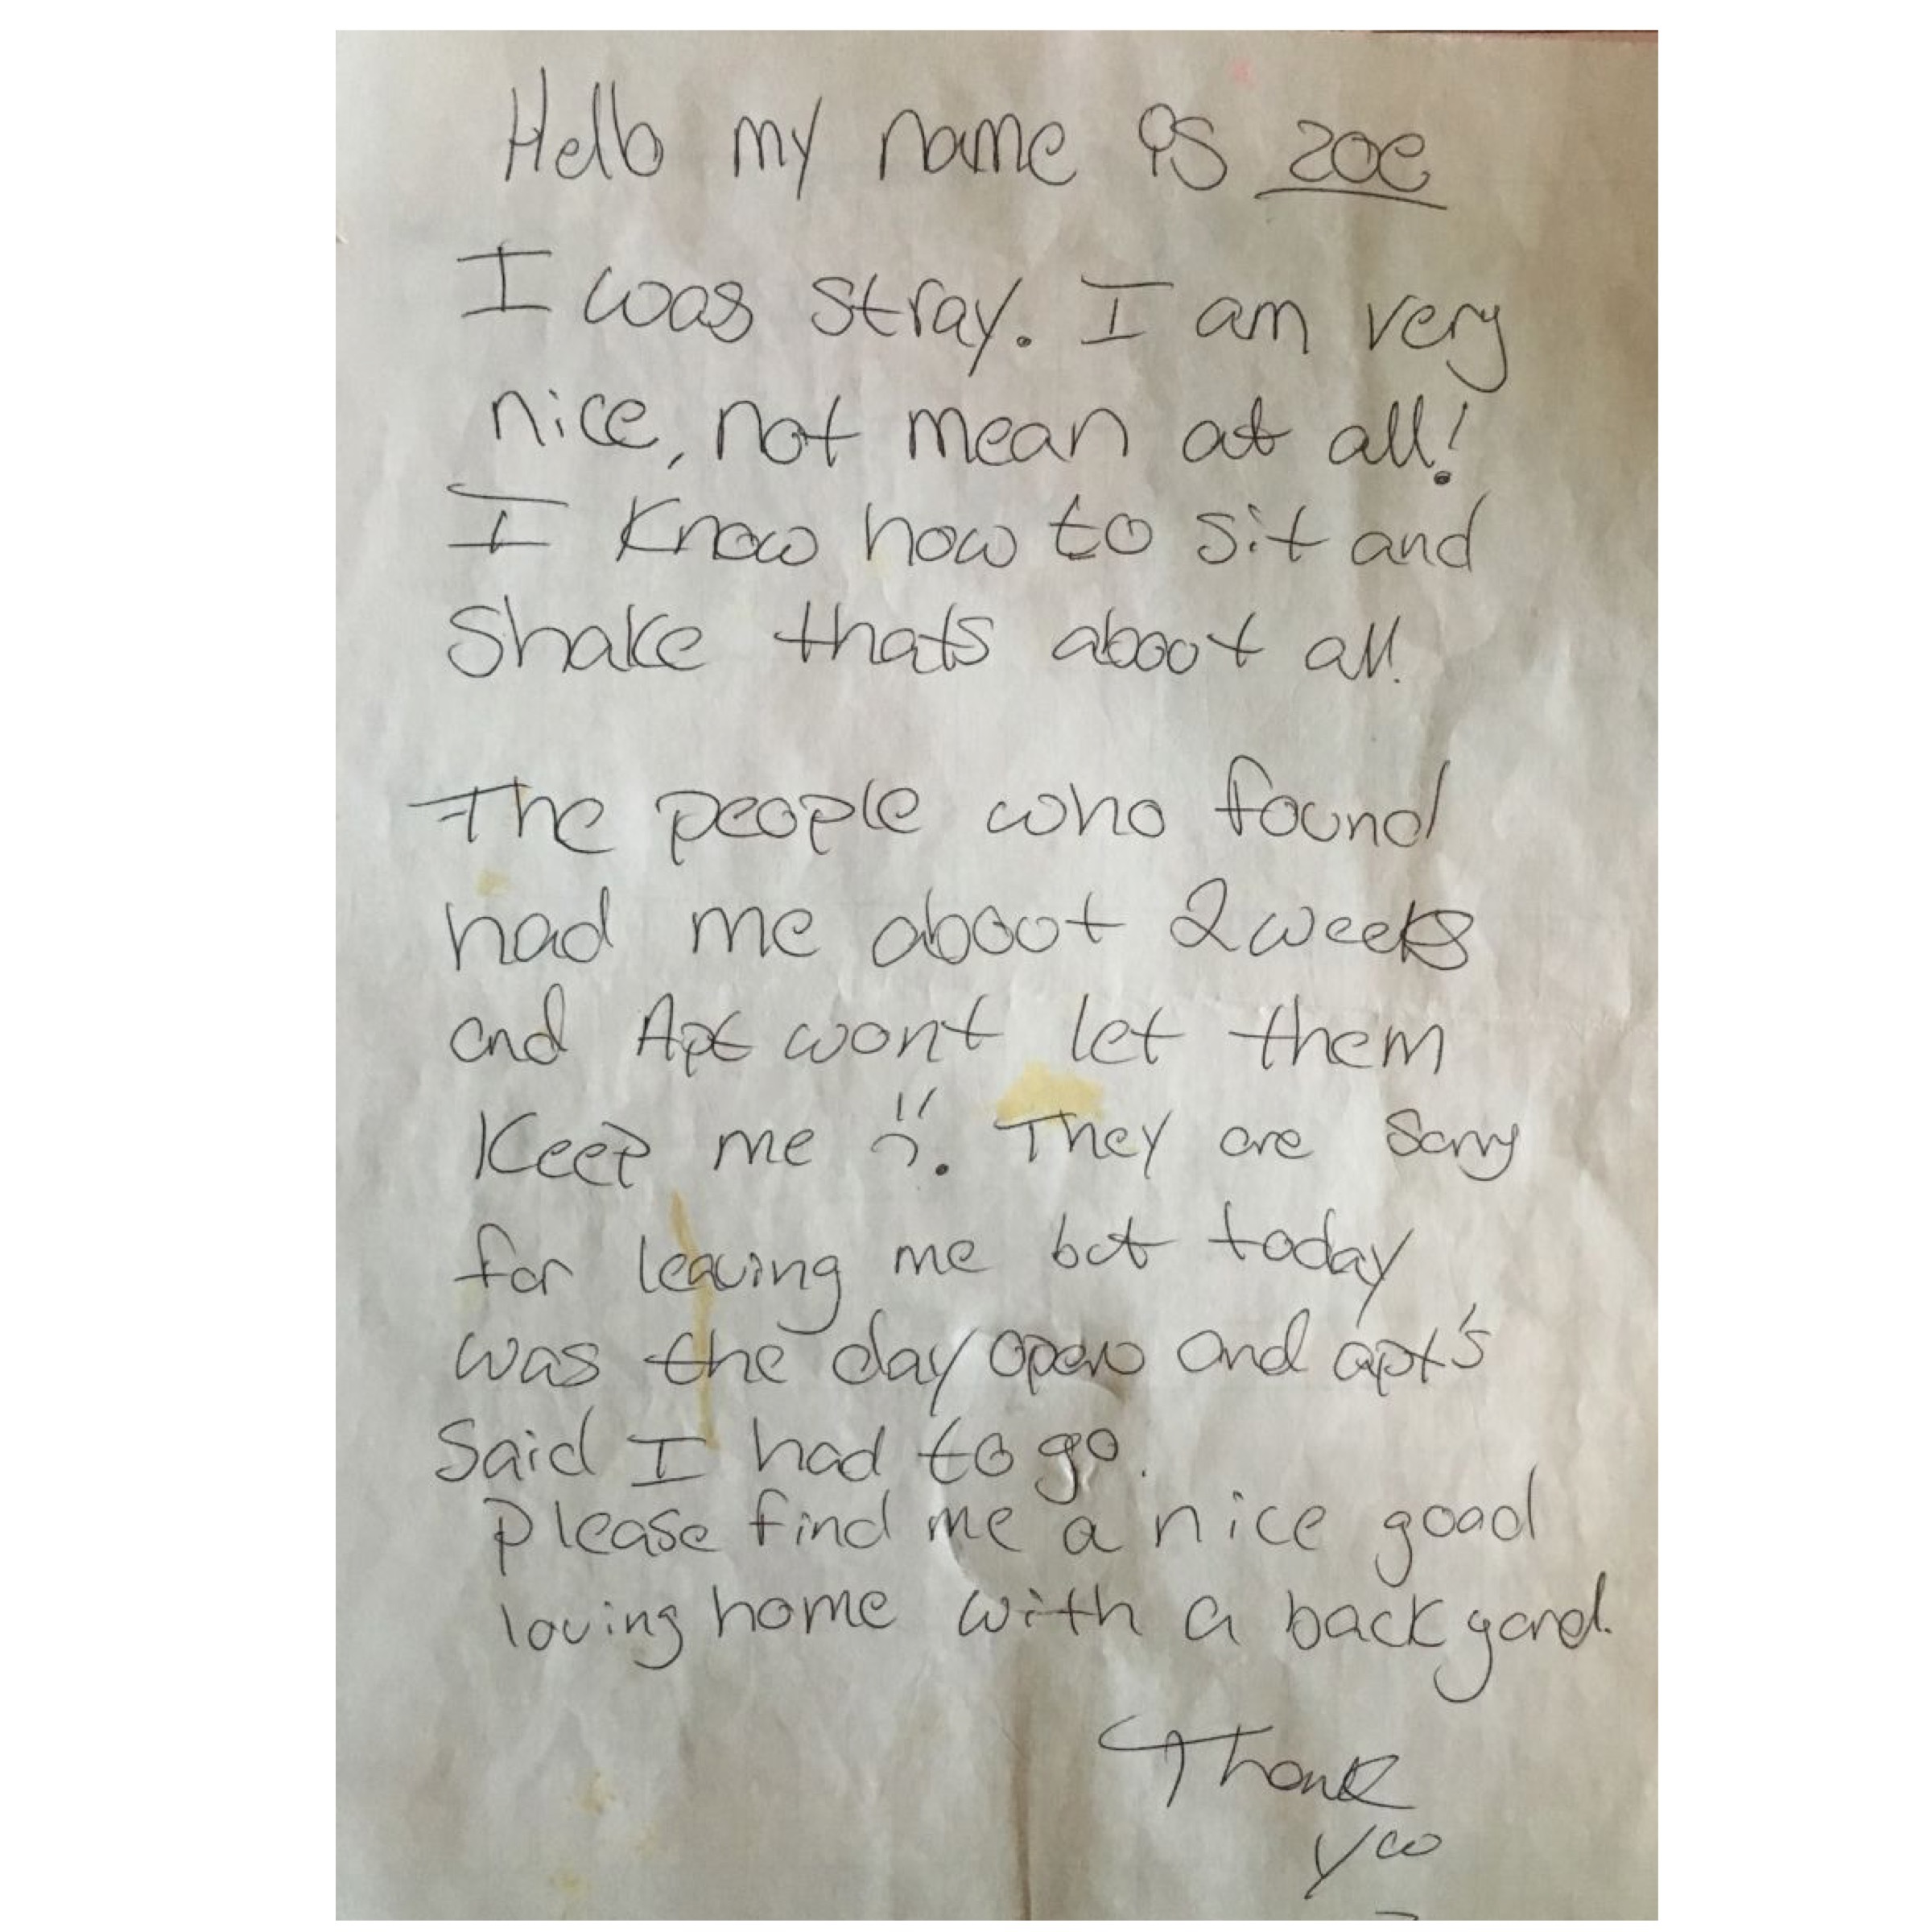 Hello my name is zoe
I was stray. I am very
nice, not mean at all!
I know how to sit and
Shake thats about all.
The people who found
had me about 2 weeks
and Apt wont let them
Keep me :(. They are sorry
for leaving me but today
was the day open and apt's
Said I had to go.
please find me a nice good
loving home with a back yard.
Thank
you